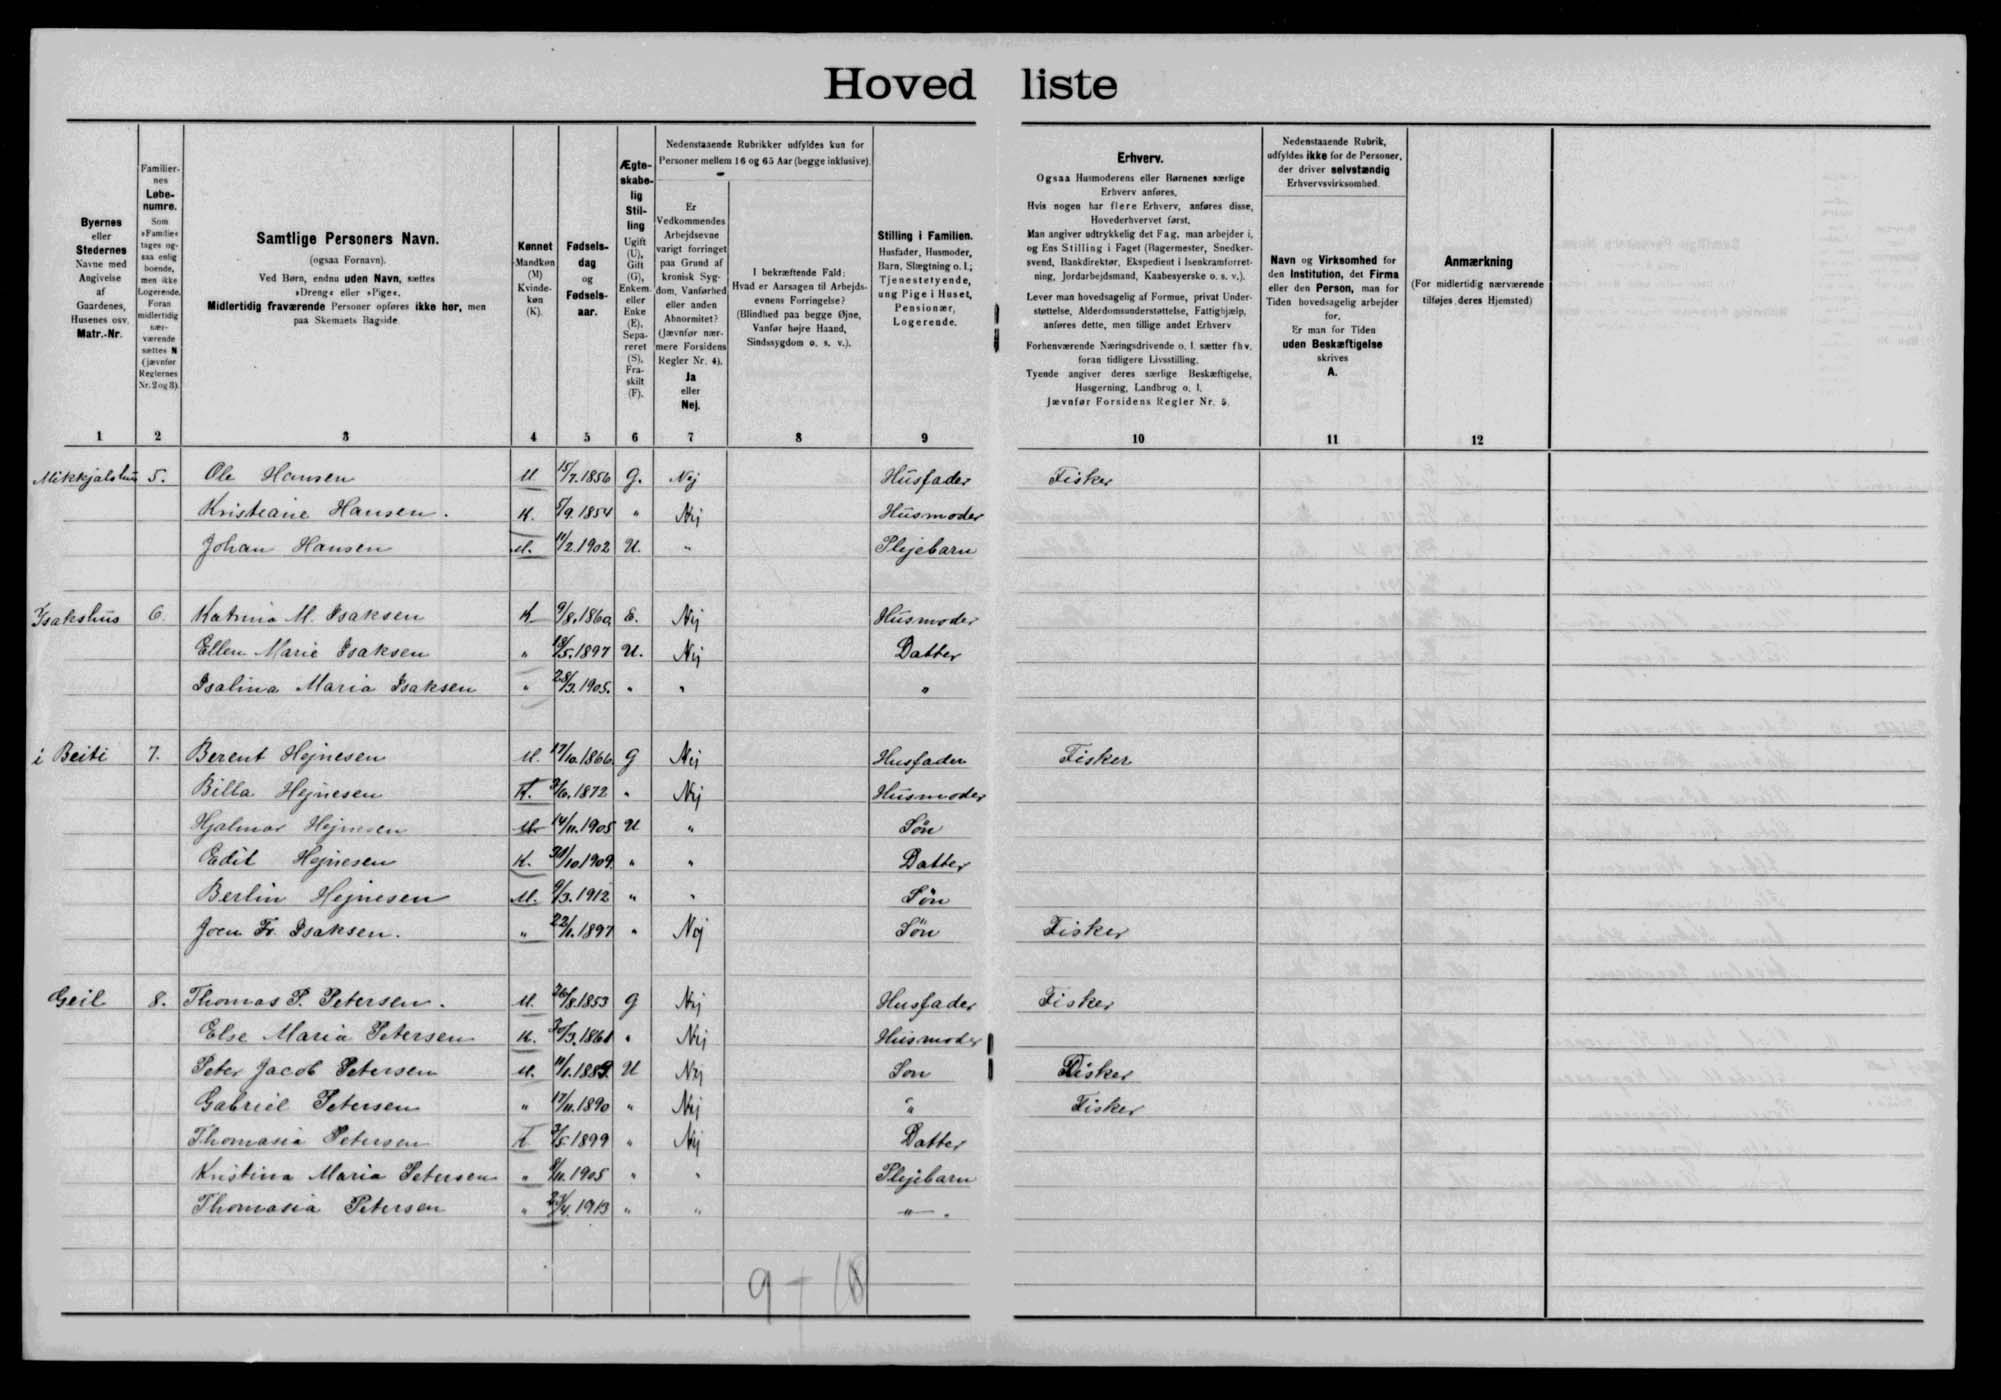 Hoved liste
Byernes eller Stedernes Navne med Angivelse af Gaardenes, Husenes osv. Matr.-Nr.
Familiernes Løbenumre. Som »Familie« tages ogsaa enlig boende, men ikke Logerende. Foran midlertidig nærværende sættes N (jævnfør Reglernes Nr. 2 og 3).
Samtlige Personers Navn.
(ogsaa Fornavn).
Ved Børn, endnu uden Navn, sættes
»Dreng« eller »Pige«.
Midlertidig fraværende Personer opføres ikke her, men
paa Skemaets Bagside.
Kønnet Mandkøn (M) Kvindekøn (K).
Fødselsdag og Fødselsaar.
Ægteskabelig Stilling Ugift (U), Gift (G), Enkem. eller Enke (E). Separeret (S), Fraskilt (F).
Nedenstaaende Rubrikker udfyldes kun for
Personer mellem 16 og 65 Aar (begge inklusive).
Er Vedkommendes Arbejdsevne varigt forringet paa Grund af kronisk Sygdom, Vanførhed eller anden Abnormitet? (Jævnfør nærmere Forsidens Regler Nr. 4). Ja eller Nej.
I bekræftende Fald: Hvad er Aarsagen til Arbejdsevnens Forringelse? (Blindhed paa begge Øjne, Vanfør højre Haand, Sindssygdom o. s. v.).
Stilling i Familien. Husfader, Husmoder, Barn, Slægtning o. l.; Tjenestetyende, ung Pige i Huset, Pensionær, Logerende.
Erhverv.
Ogsaa Husmoderens eller Børnenes særlige
Erhverv anføres.
Hvis nogen har flere Erhverv, anføres disse,
Hovederhvervet først.
Man angiver udtrykkelig det Fag, man arbejder i,
og Ens Stilling i Faget (Bagermester, Snedker-
svend, Bankdirektør, Ekspedient i Isenkramforret-
ning, Jordarbejdsmand, Kaabesyerske o. s. v.).
Lever man hovedsagelig af Formue, privat Under-
støttelse, Alderdomsunderstøttelse, Fattighjælp,
anføres dette, men tillige andet Erhverv
Forhenværende Næringsdrivende o. l. sætter fhv.
foran tidligere Livsstilling.
Tyende angiver deres særlige Beskæftigelse,
Husgerning, Landbrug o. l.
Jævnfør Forsidens Regler Nr. 5.
Nedenstaaende Rubrik,
udfyldes ikke for de Personer,
der driver selvstændig
Erhvervsvirksomhed.
Navn og Virksomhed for
den Institution, det Firma
eller den Person, man for
Tiden hovedsagelig arbejder
for.
Er man for Tiden
uden Beskæftigelse
skrives
A.
Anmærkning
(For midlertidig nærværende
tilføjes deres Hjemsted)
1 2 3 4 5 6 7 8 9 10 11 12
Mikkjalshus 5. Ole Hansen M 15/7.1856 G. Nej Husfader Fisker
Kristiane Hansen. K. 5/9.1854 " Nej Husmoder
Johan Hansen M. 11/2.1902 U. " Plejebarn
Isakshus 6. Katrina M. Isaksen K 9/8.1860. E. Nej Husmoder
Ellen Marie Isaksen " 18/5.1897 U. Nej Datter
Isalina Maria Isaksen " 28/3.1905. " " "
i Beiti 7. Berent Hejnesen M. 17/10.1866. G Nej Husfader Fisker
Billa Hejnesen K. 2/6.1872 " Nej Husmoder
Hjalmar Hejnesen M 14/11.1905 U " Søn
Edit Hejnesen K. 30/10.1909. " " Datter
Berlin Hejnesen M. 9/3.1912 " " Søn
Joen Fr. Isaksen. " 22/11.1897 " Nej Søn Fisker
Geil 8. Thomas P. Petersen. M. 26/8.1853 G Nej Husfader Fisker
Else Maria Petersen K. 20/3.1861 " Nej Husmoder
Peter Jacob Petersen M. 11/1.1889. U Nej Søn Fisker
Gabriel Petersen " 17/11.1890 " Nej " Fisker
Thomasia Petersen K 3/5.1899 " Nej Datter
Kristina Maria Petersen " 9/11.1905 " " Plejebarn
Thomasia Petersen " 23/4.1913 " " "
9 + 10